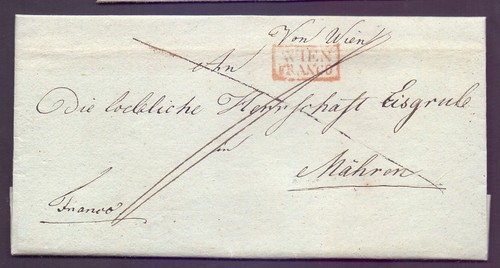 Von Wien
WIEN
FRANCO
An
Die loebliche Herrschaft Eisgrub
in
Mähren
Franco